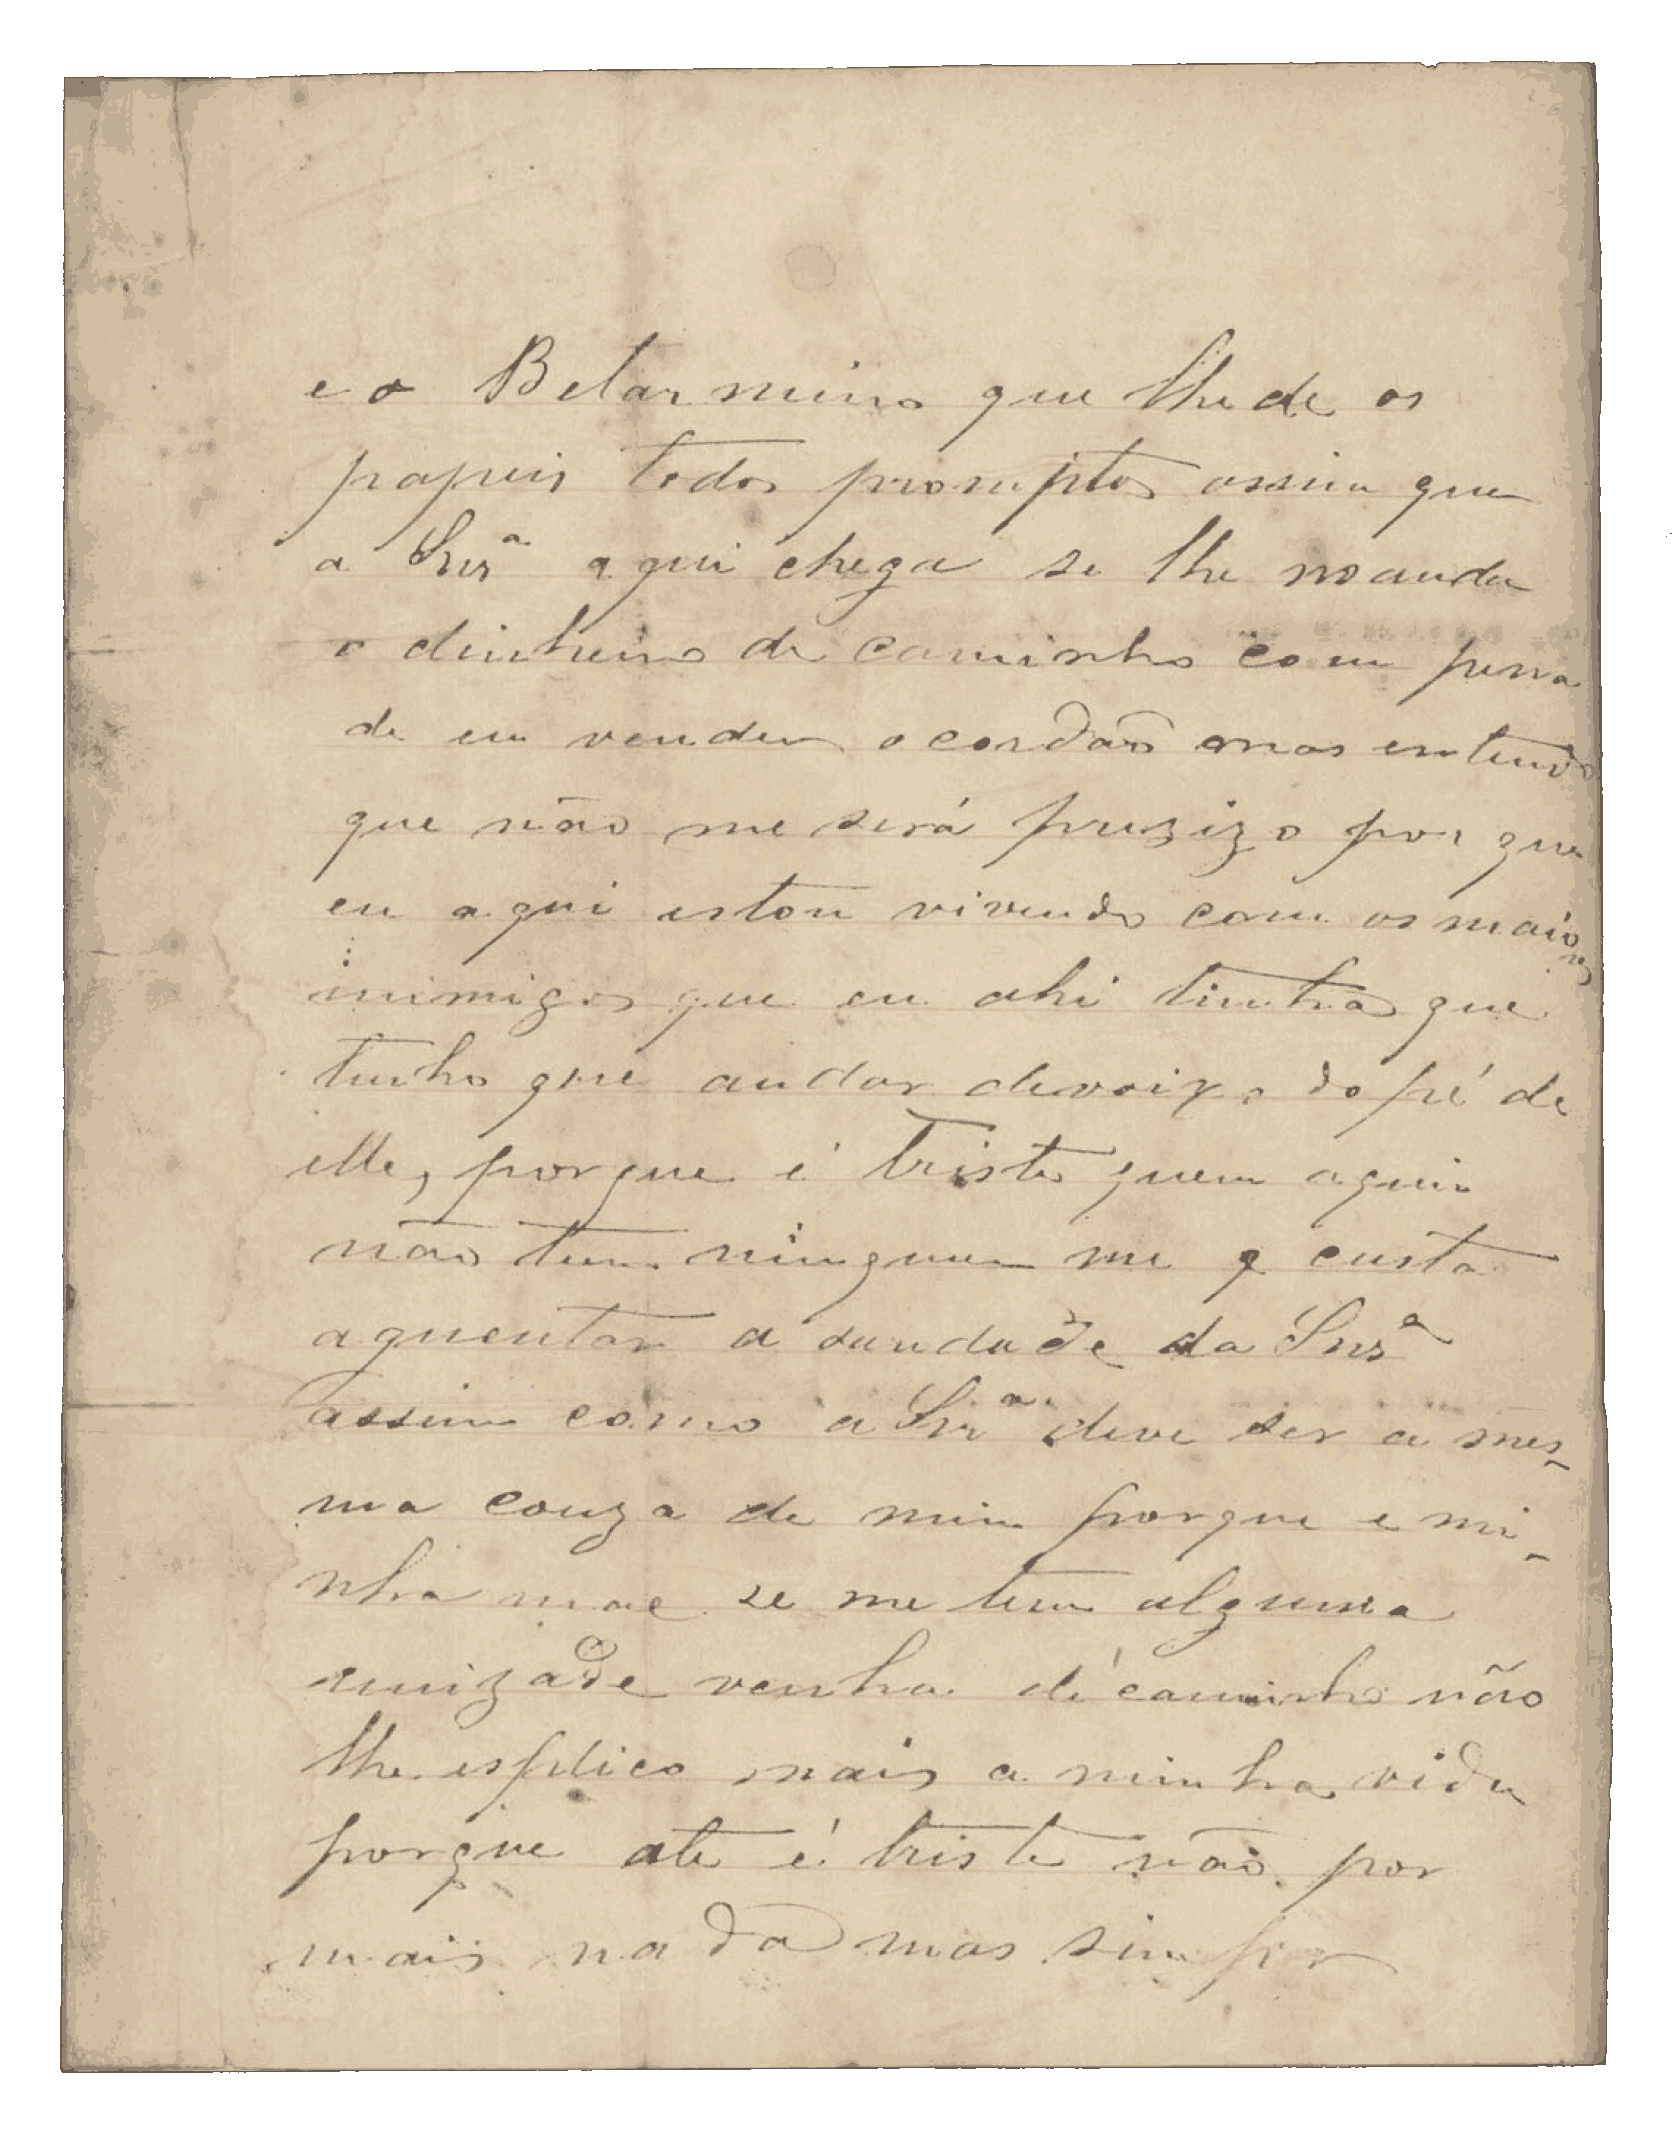 e o Belarmino que lhe de os
papeis todos promptos assim que
a Snrª aqui chega se lhe manda
o dinheiro de caminho com pena
de eu vender o cordão mas entendo
que não me será prezizo por que
eu aqui estou vivendo com os maiores
inimigos que eu ahi tinha que
tenho que andar devaixo do pé de
elle, porque é triste quem aqui
não tem ninguem me custa
aguentar a saudade da Snrª
assim como a Snrª deve ser a mes-
ma couza de mim porque e mi-
nha mae se me tem alguma
amizade venha de caminho não
lhe esplico mais a minha vida
porque ate é triste não por
mais nada mas sim por